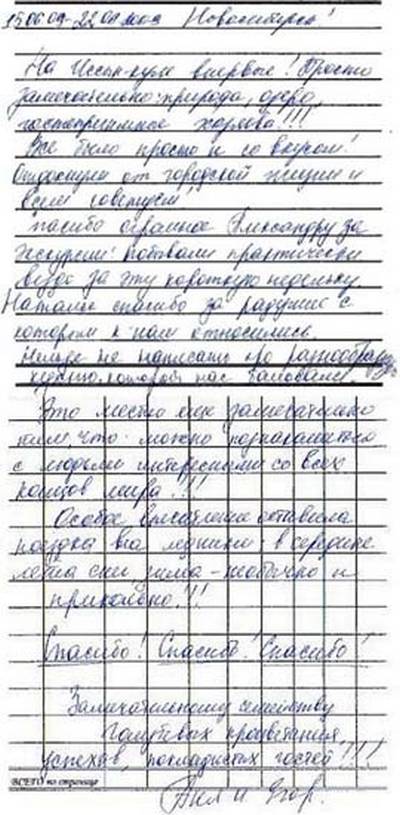 15.06.09-22.06.2009 Новосибирск!
На Иссык-куле впервые! Просто
замечательно: природа, озеро,
гостеприимные хозяева!!!
Все было просто и со вкусом!
Отдохнули от городской жизни и
всем советуем!
Спасибо огромное Александру за
экскурсии: побывали практически
везде за эту короткую недельку.
Наталье спасибо за радушие с
которым к нам относились.
Нельзя не написать про разнообразную
кухню, которой нас баловали.
Это место еще замечательно
тем что можно познакомиться
с людьми интересными со всех
концов мира!!!
Особое впечатление оставила
поездка на ледники: в середине
лета снег, зима - необычно и
прикольно!!!
Спасибо! Спасибо! Спасибо!
Замечательному семейству
Голубевых процветания,
успехов, покладистых гостей!!!
ВСЕГО на странице
и Егор.